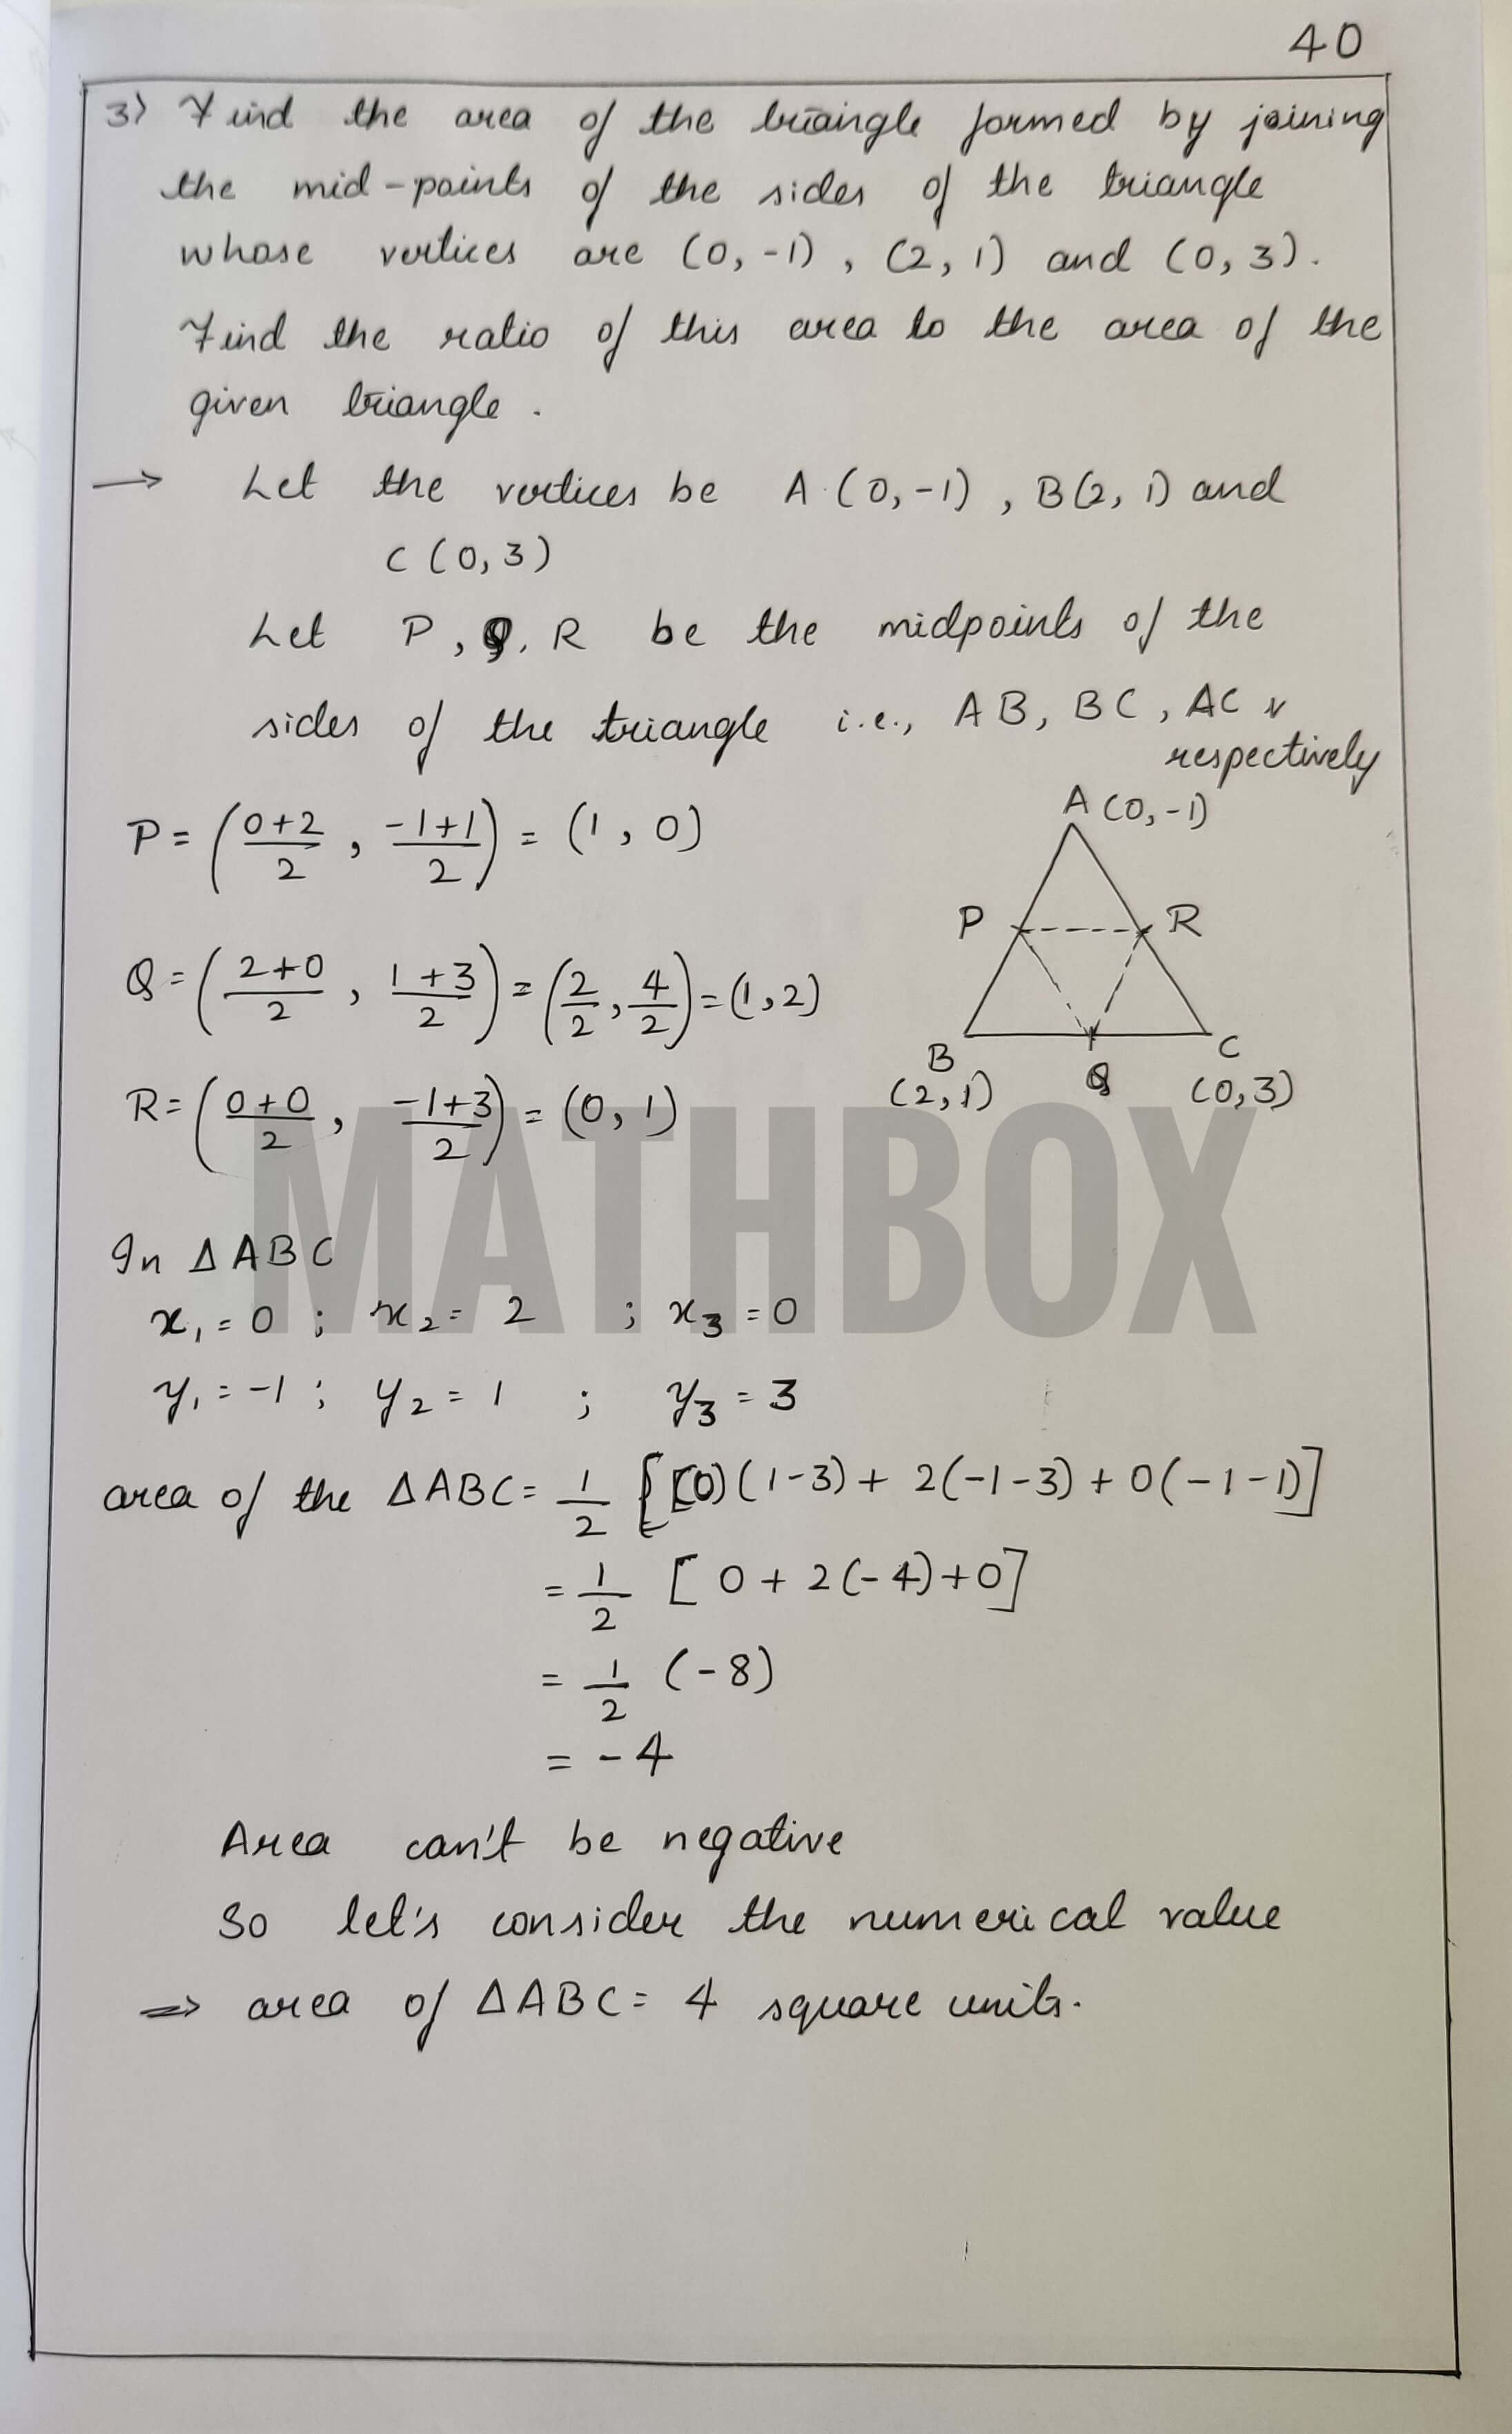 40
3) Find the area of the triangle formed by joining
the mid-points of the sides of the triangle
whose vertices are (0,-1), (2,1) and (0,3).
Find the ratio of this area to the area of the
given triangle.
→ Let the vertices be A(0,-1), B(2,1) and
C(0,3)
Let P, Q, R be the midpoints of the
sides of the triangle i.e., AB, BC, AC
respectively
P = (0+2/2, -1+1/2) = (1, 0)
Q = (2+0/2, 1+3/2) = (2/2, 4/2) = (1, 2)
R = (0+0/2, -1+3/2) = (0, 1)
A (0,-1)
P
R
B
(2,1)
Q
C
(0,3)
MATHBOX
In Δ ABC
x₁ = 0 ; x₂ = 2 ; x₃ = 0
y₁ = -1 ; y₂ = 1 ; y₃ = 3
area of the ΔABC = 1/2 [(0)(1-3) + 2(-1-3) + 0(-1-1)]
= 1/2 [0 + 2(-4) + 0]
= 1/2 (-8)
= -4
Area can't be negative
So let's consider the numerical value
⇒ area of ΔABC = 4 square units.